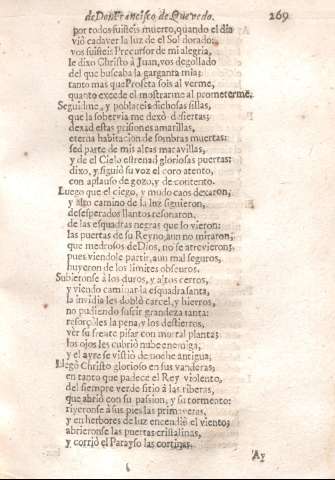 de Don Francisco de Quevedo. 269
por todos fuisteis muerto, quando el dia
viò cadaver la luz de el Sol dorado;
vos fuisteis Precursor de mi alegria,
le dixo Christo à Juan, vos degollado
del que buscaba la garganta mia;
tanto mas que Profeta sois al verme,
quanto excede el mostrarme al prometerme.
Seguidme, y poblareis dichosas sillas,
que la sobervia me dexò desiertas;
dexad estas prisiones amarillas,
eterna habitacion de sombras muertas:
sed parte de mis altas maravillas,
y de el Cielo estrenad gloriosas puertas:
dixo, y siguiò su voz el coro atento,
con aplauso de gozo, y de contento.
Luego que el ciego, y mudo caos dexaron,
y alto camino de la luz siguieron,
desesperados llantos resonaron,
de las esquadras negras que lo vieron:
las puertas de su Reyno aun no miraron,
que medrosos de Dios, no se atrevieron;
pues viendole partir, aun mal seguros,
huyeron de los limites obscuros.
Subieronse à los duros, y altos cerros,
y viendo caminar la esquadra santa,
la invidia les doblò carcel, y hierros,
no pudiendo sufrir grandeza tanta:
resorçòles la pena, y los destierros,
ver su frente pisar con mortal planta:
los ojos les cubriò nube enemiga,
y el ayre se vistiò de noche antigua;
Llegò Christo glorioso en sus vanderas;
en tanto que padece el Rey violento,
del siempre verde sitio à las riberas,
que abriò con su passion, y su tormento:
riyeronse à sus pies las primaveras,
y en herbores de luz encendiò el viento;
abrieronse las puertas cristalinas,
y corriò el Parayso las cortinas.
Ay